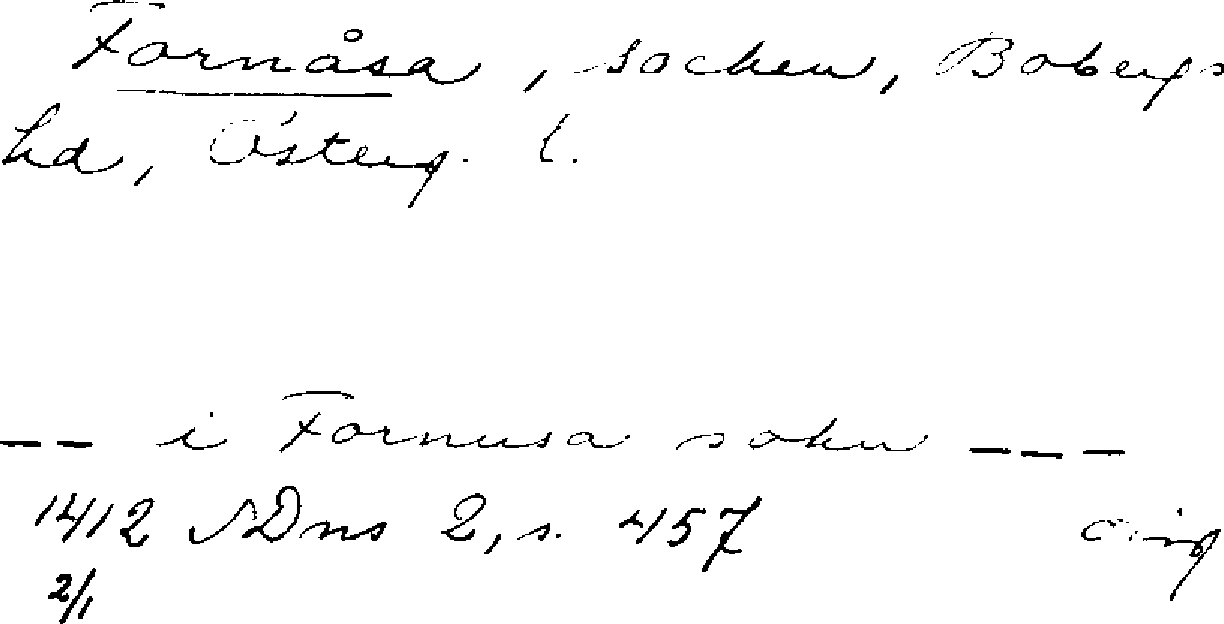 Fornåsa, socken, Bobergs
hd, Österg. l.
-- i Fornusa sokn ---
1412 SDns 2, s. 457 orig
2/1